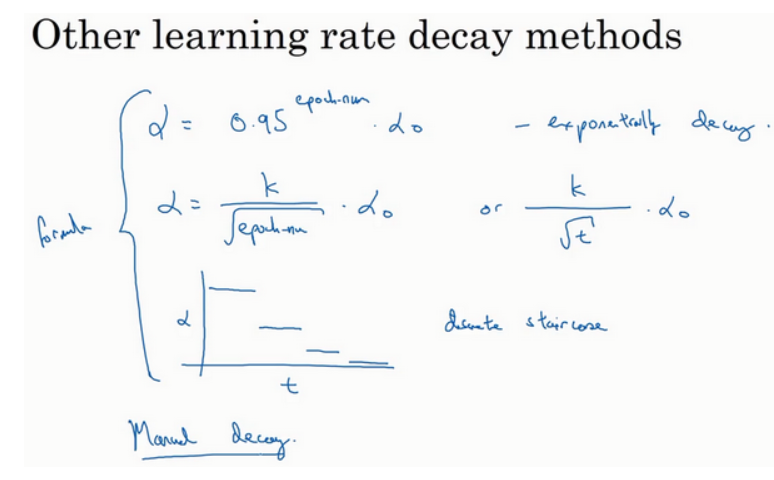 Other learning rate decay methods
α = 0.95^epoch-num · α₀ – exponentially decay.
α = k / √epoch-num · α₀ or k / √t · α₀
formula
α
discrete staircase
t
Manual decay.